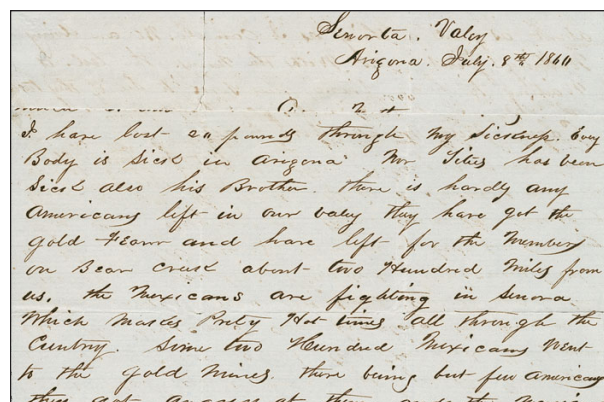 Senorta. Valey
Arizona. July. 8th 1860
I have lost 20 pounds through my Sickness. Evry
Body is Sick in Arizona Mr Tities has been
Sick also his Brother. there is hardly any
Americans lift in our valey they have got the
gold Fearr and have left for the Mimbers
on Bear Creak about two Hundred Miles from
us. the Mexicans are fighting in Senora
Which Makes Prety Hot times all through the
Cuntry. Some two Hundred Mexicans Went
to the gold Mines. there being but few Americans
they got